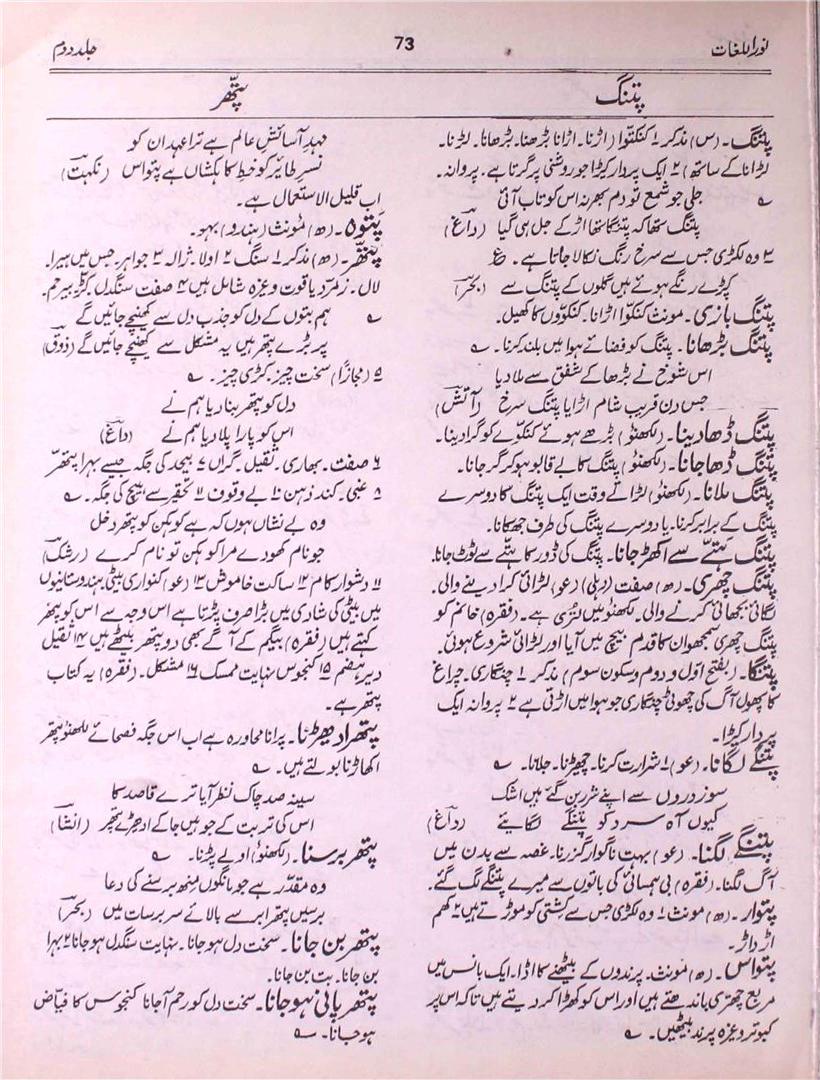 نوراللغات
73
جلد دوم
پتنگ
پتھر
پتنگ۔ (س) مذکر ۱ کنکوّا (اڑنا۔ اڑانا بڑھنا۔ بڑھانا۔ لڑنا۔
لڑانا کے ساتھ) ۲ ایک پردار کیڑا جو روشنی پر گرتا ہے۔ پروانہ۔
؎ جلی جو شمع تو دم بھر نہ اس کو تاب آئی
پتنگ تھا کہ پتنگا تھا اڑ کے جل ہی گیا (داغ)
۳ وہ لکڑی جس سے سرخ رنگ نکالا جاتا ہے۔ ع
کپڑے رنگے ہوئے ہیں گلوں کے پتنگ سے (بحر)
پتنگ بازی۔ مونث کنکوّا اڑانا۔ کنکوّوں کا کھیل۔
پتنگ بڑھانا۔ پتنگ کو فضائے ہوا میں بلند کرنا۔ ؎
اس شوخ نے بڑھا کے شفق سے ملا دیا
جس دن قریب شام اڑایا پتنگ سرخ (آتش)
پتنگ ڈھا دینا۔ (لکھنؤ) بڑھے ہوئے کنکوّے کو گرا دینا۔
پتنگ ڈھا جانا۔ (لکھنؤ) پتنگ کا بے قابو ہو کر گر جانا۔
پتنگ ملانا۔ (لکھنؤ) لڑاتے وقت ایک پتنگ کا دوسرے
پتنگ کے برابر کرنا۔ یا دوسرے پتنگ کی طرف جھکانا۔
پتنگ ہتّے سے اکھڑ جانا۔ پتنگ کی ڈور کا ہتّے سے ٹوٹ جانا۔
پتنگ چھری۔ (ھ) صفت (دہلی) (عو) لڑائی کرا دینے والی۔
لگائی بجھائی کرنے والی۔ لکھنؤ میں لتری ہے۔ (فقرہ) خانم کو
پتنگ چھری سمجھو ان کا قدم بیچ میں آیا اور لڑائی شروع ہوئی۔
پتنگا۔ (بفتح اوّل و دوم و سکون سوم) مذکر ۱ چنگاری۔ چراغ
کا پھول آگ کی چھوٹی چنگاری جو ہوا میں اڑتی ہے ۲ پروانہ ایک
پردار کیڑا۔
پتنگے لگانا۔ (عو) ۱ شرارت کرنا۔ چھیڑنا۔ جلانا۔ ؎
سوز دروں سے اپنے شرر بن گئے ہیں اشک
کیوں آہ سرد کو پتنگے لگائیے (داغ)
پتنگے لگنا۔ (عو) بہت ناگوار گزرنا۔ غصہ سے بدن میں
آگ لگنا۔ (فقرہ) بی ہمسائی کی باتوں سے میرے پتنگے لگ گئے۔
پتوار۔ (ھ) مونث ۱ وہ لکڑی جس سے کشتی کو موڑتے ہیں ۲ کھم
اڑ داڑ۔
پتواس۔ (ھ) مونث۔ پرندوں کے بیٹھنے کا اڈا۔ ایک بانس میں
مربع چھتری باندھتے ہیں اور اس کو کھڑا کر دیتے ہیں تاکہ اس پر
کبوتر وغیرہ پرند بیٹھیں۔ ؎
مہد آسائش عالم ہے ترا عہد ان کو
نسر طائر کو خط کاہکشاں ہے پتواس (نکہت)
اب قلیل الاستعمال ہے۔
پتوہ۔ (ھ) مونث (ہندو) بہو۔
پتّھر۔ (ھ) مذکر ۱ سنگ ۲ اولا۔ ژالہ ۳ جواہر جس میں ہیرا۔
لال۔ زمرد یاقوت وغیرہ شامل ہیں ۴ صفت سنگدل کٹّر بیرحم۔
؎ ہم بتوں کے دل کو جذب دل سے کھینچے جائیں گے
پر بڑے پتھر ہیں یہ مشکل سے کھینچے جائیں گے (ذوق)
۵ (مجازاً) سخت چیز۔ کڑی چیز۔ ؎
دل کو پتھر بنا دیا ہم نے
اس کو پارا پلا دیا ہم نے (داغ)
۶ صفت۔ بھاری۔ ثقیل۔ گراں ۷ بیحد کی جگہ جیسے بہرا پتھر
۸ غبی۔ کند ذہن ۹ بے وقوف ۱۰ تحقیر سے ہیچ کی جگہ۔ ؎
وہ بے نشاں ہوں کہ ہے کوہکن کو پتھر دخل
جو نام کھودے مرا کوہکن تو نام کرے (رشک)
۱۱ دشوار کام ۱۲ ساکت خاموش ۱۳ (عو) کنواری بیٹی ہندوستانیوں
میں بیٹی کی شادی میں بڑا صرف پڑتا ہے اس وجہ سے اس کو پتھر
کہتے ہیں (فقرہ) بیگم کے آگے بھی دو پتھر بیٹھے ہیں ۱۴ ثقیل
دیر ہضم ۱۵ کنجوس نہایت ممسک ۱۶ مشکل۔ (فقرہ) یہ کتاب
پتھر ہے۔
پتھر ادھیڑنا۔ پرانا محاورہ ہے اب اس جگہ فصحائے لکھنؤ پتھر
اکھاڑنا بولتے ہیں۔ ؎
سینہ صد چاک نظر آیا ترے قاصد کا
اس کی تربت کے جو ہیں جا کے ادھیڑے پتھر (انشا)
پتھر برسنا۔ (لکھنؤ) اولے پڑنا۔ ؎
وہ مقدّر ہے جو مانگوں منھ برسنے کی دعا
برسیں پتھر ابر سے بالائے سر برسات میں (بحر)
پتھر بن جانا۔ سخت دل ہو جانا۔ نہایت سنگدل ہو جانا ۲ بہرا
بن جانا۔ بت بن جانا۔
پتھر پانی ہو جانا۔ سخت دل کو رحم آ جانا کنجوس کا فیّاض
ہو جانا۔ ؎